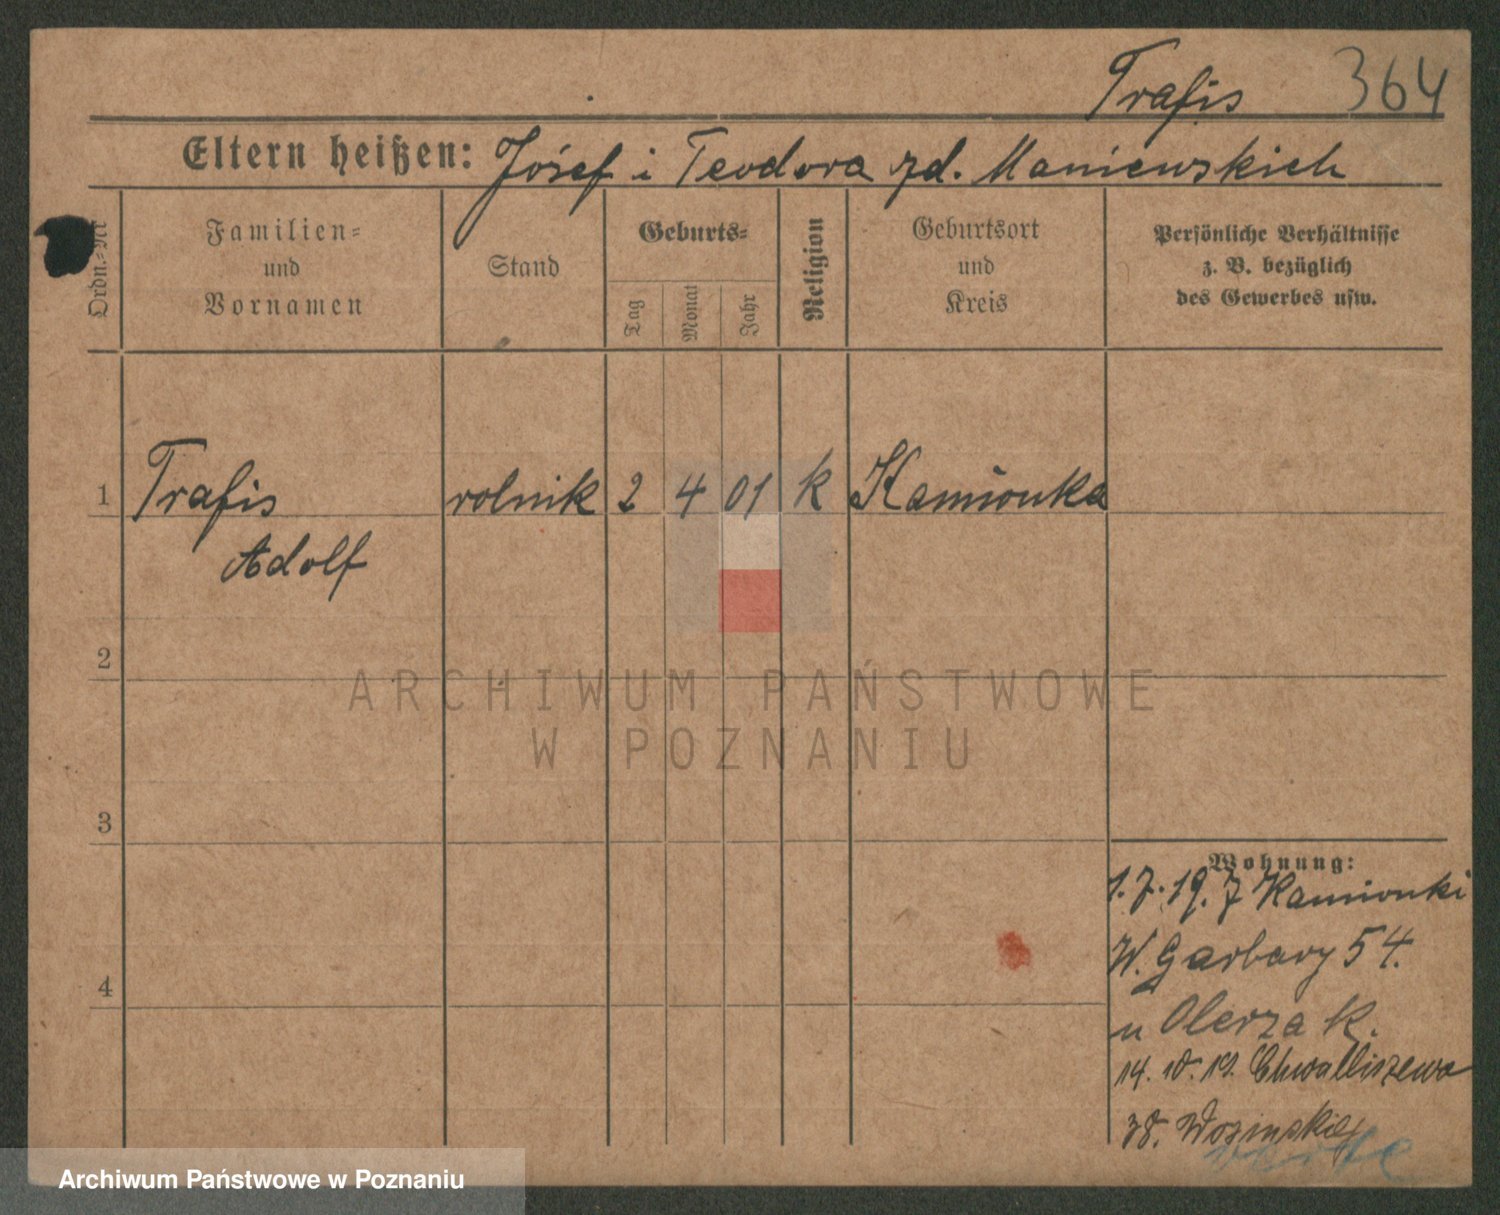 Trafis 364
Eltern heißen: Józef i Teodora zd. Maniewskich
Ordn.-Nr
Familien-
und
Vornamen
Stand
Geburts-
Tag
Monat
Jahr
Religion
Geburtsort
und
Kreis
Persönliche Verhältnisse
z. B. bezüglich
des Gewerbes usw.
1 Trafis rolnik 2 4 01 k Kamionka
Adolf
2
3
4
Wohnung:
1.7.19. Z Kamionki
W. Garbary 54.
u Olerzak.
14. 10. 19. Chwaliszewo
38.
verte
ARCHIWUM PAŃSTWOWE
W POZNANIU
Archiwum Państwowe w Poznaniu